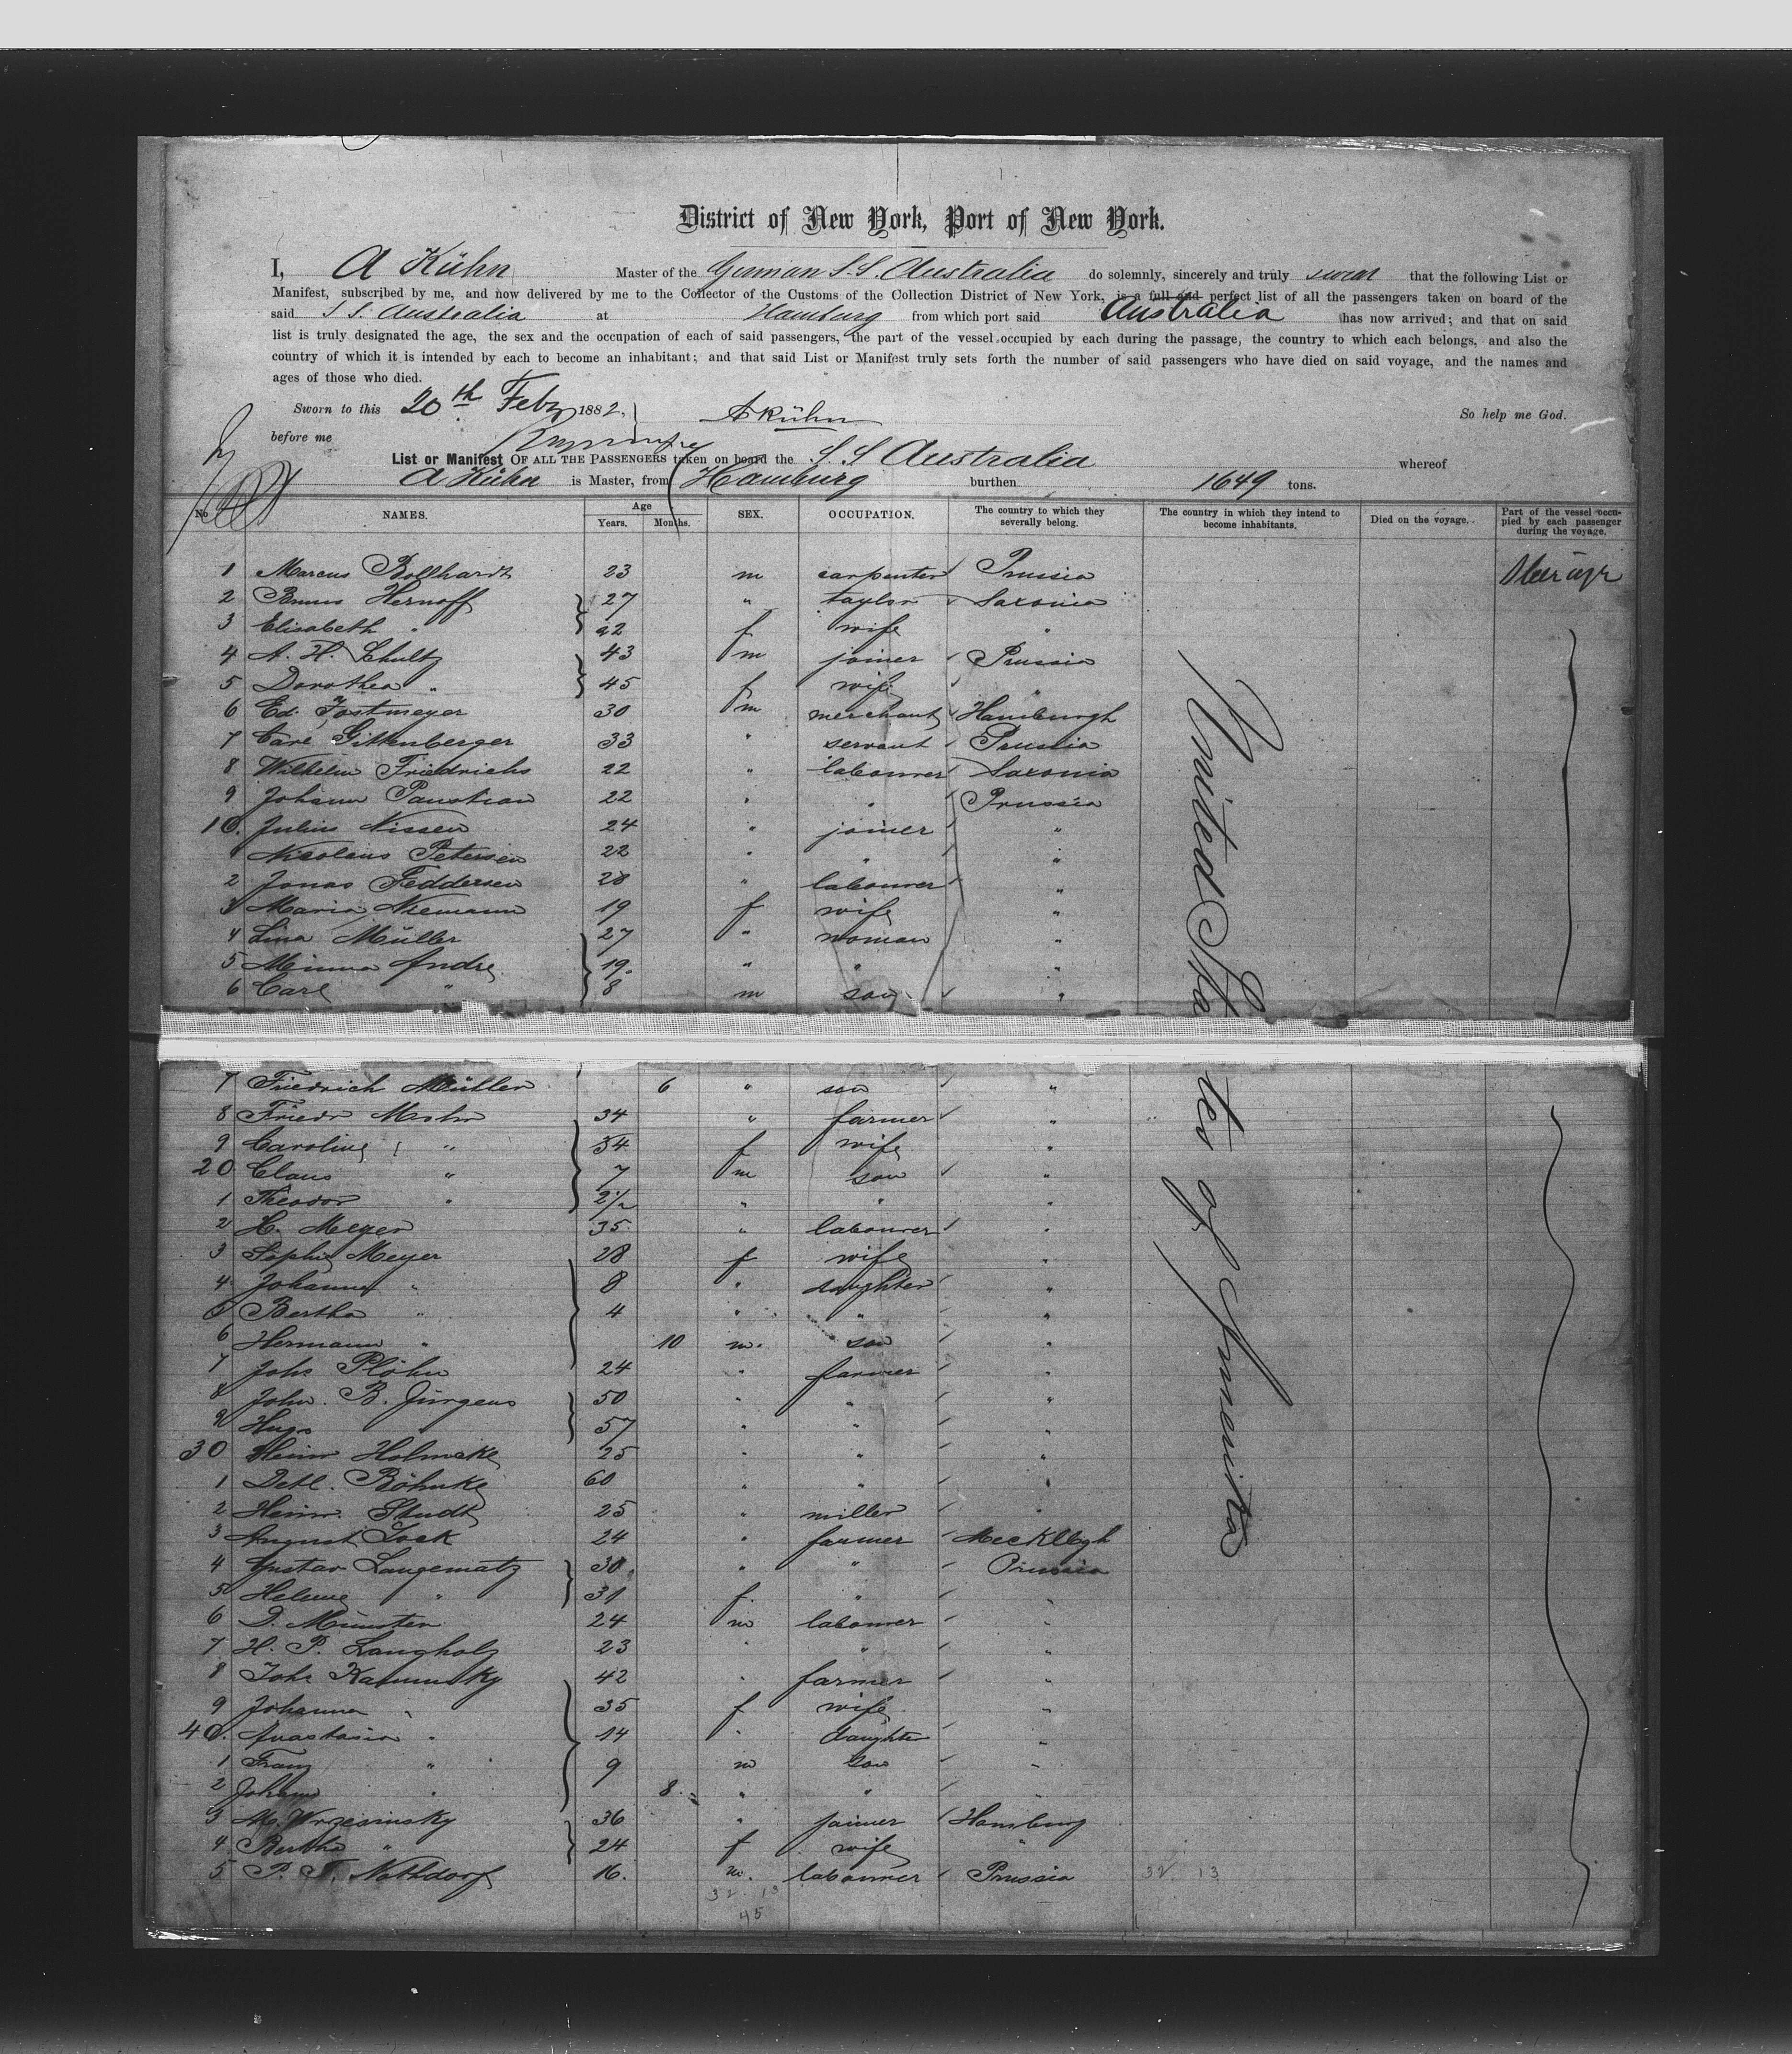 District of New York, Port of New York.
I, A Kühn Master of the German S.S. Australia do solemnly, sincerely and truly swear that the following List or
Manifest, subscribed by me, and now delivered by me to the Collector of the Customs of the Collection District of New York, is a full and perfect list of all the passengers taken on board of the
said S S Australia at Hamburg from which port said Australia has now arrived; and that on said
list is truly designated the age, the sex and the occupation of each of said passengers, the part of the vessel occupied by each during the passage, the country to which each belongs, and also the
country of which it is intended by each to become an inhabitant; and that said List or Manifest truly sets forth the number of said passengers who have died on said voyage, and the names and
ages of those who died.
Sworn to this 20th Feby 1882. A Kühn So help me God.
before me
List or Manifest OF ALL THE PASSENGERS taken on board the S.S Australia whereof
A Kühn is Master, from Hamburg burthen 1649 tons.
No NAMES. Age Years. Months. SEX. OCCUPATION. The country to which they severally belong. The country in which they intend to become inhabitants. Died on the voyage. Part of the vessel occupied by each passenger during the voyage.
1 Marcus Bollhardt 23 m carpenter Prussia
2 Hernoff 27 " taylor Saxonia
3 Elisabeth " 22 f wife "
4 A. H. Schultz 43 m joiner Prussia
5 Dorothea " 45 f wife "
6 Ed. Jostmeyer 30 m merchant Hamburgh
7 Carl Gittenberger 33 " servant Prussia
8 Wilhelm Friedrichs 22 " labourer Saxonia
9 Johann Paustian 22 " " Prussia
10. Julius Nissen 24 " joiner "
1 Nicolaus Petersen 22 " " "
2 Jonas Feddersen 28 " labourer "
3 Maria Niemann 19 f wife "
4 Lina Müller 27 " woman "
5 Minna Andre 19. " " "
6 Carl " 8 m son "
7 Friedrich Müller 6 " son "
8 Friedr 34 " farmer "
9 Caroline " 34 f wife "
20 Claus " 7 m son "
1 Theodor " 2½ " " "
2 H. Meyer 35 " labourer "
3 Sophie Meyer 28 f wife "
4 Johanna " 8 " daughter "
5 Bertha " 4 " " "
6 Hermann " 10 m. son "
7 Johs Plöhn 24 " farmer "
8 John. B. Jürgens 50 " " "
9 Hugo 57 " " "
30 Heinr Holmcke 25 " " "
1 Detl. Böhnke 60 " " "
2 Heinr. Studt 25 " miller "
3 August Jock 24 " farmer Mecklbgh
4 Gustav Langematz 30. " " Prussia
5 Helene " 31 f. " "
6 D. Münster 24 m labourer "
7 H. P. Langholz 23 " " "
8 Johs Kaminsky 42 " farmer "
9 Johanna " 35 f wife "
40. Anastasia " 14 " daughter "
1 Franz " 9 m son "
2 Johann " 8 " " "
3 M. Wrzesinsky 36 " joiner Hamburg
4 Bertha " 24 f wife "
5 P. F. Nothdorf 16. m. labourer Prussia 32 13
32 13
45
United States of America